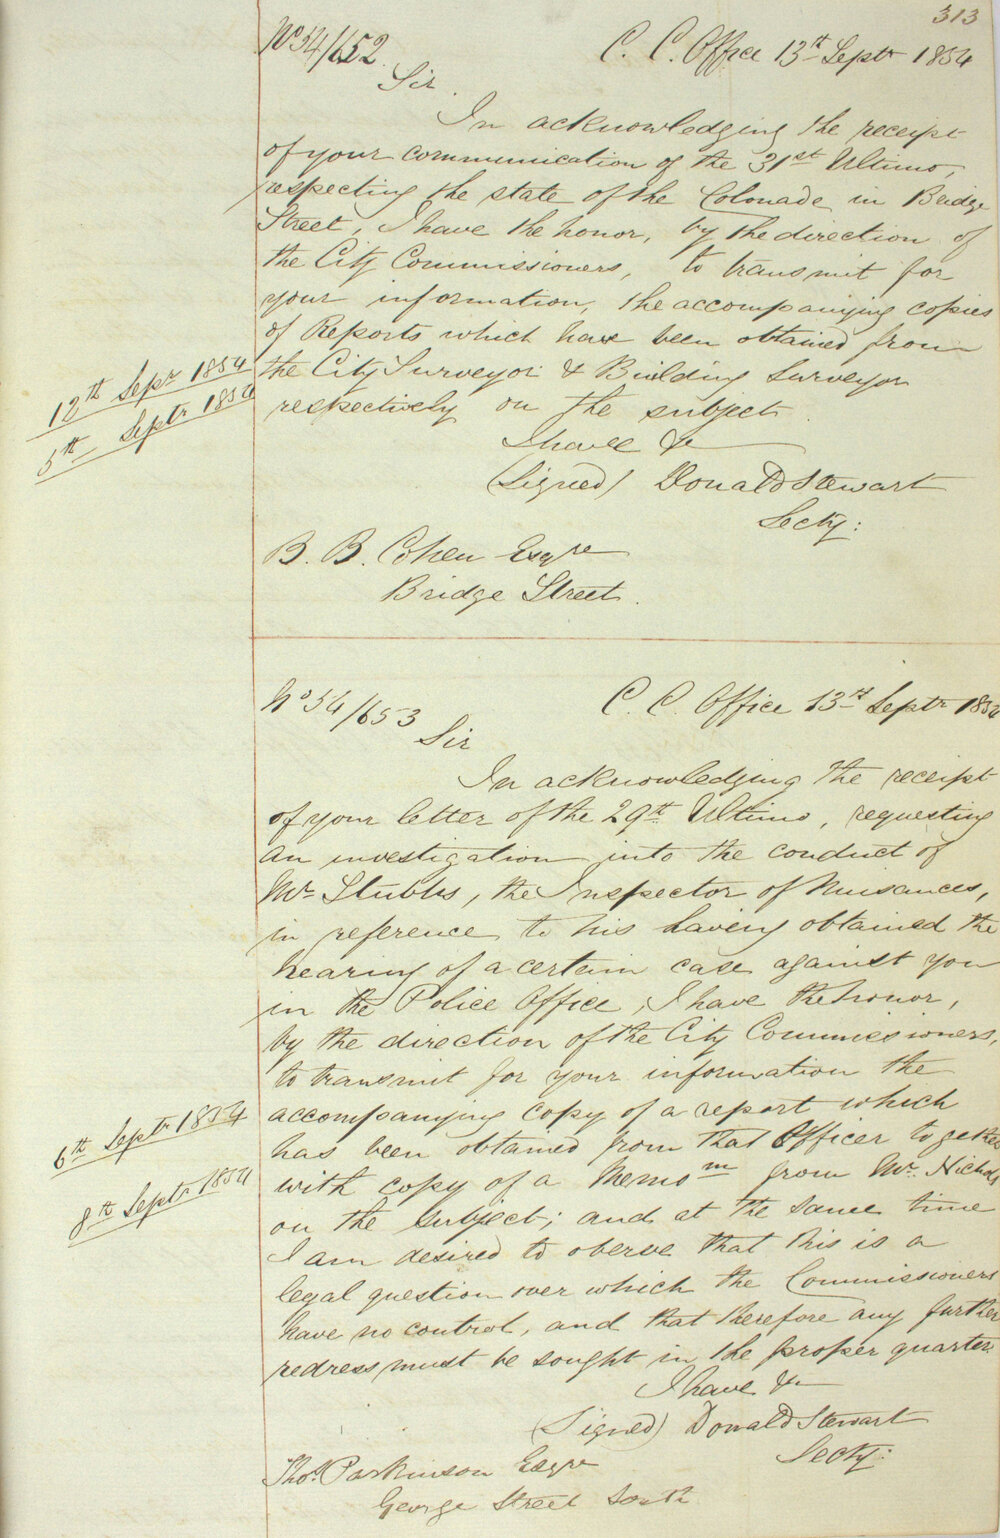 313
No 54/652
C. C. Office 13th Septr 1854
Sir
In acknowledging the receipt
of your communication of the 31st Ultimo,
respecting the state of the Colonade in Bridge
Street, I have the honor, by the direction of
the City Commissioners, to transmit for
your information, the accompanying copies
of Reports which have been obtained from
12th Sepr 1854
the City Surveyor & Building Surveyor
5th Septr 1854
respectively on the subject.
I have &c
(Signed) Donald Stewart
Secty:
B. B. Cohen Esqre
Bridge Street.
No 54/653
C. C. Office 13th Septr 1854
Sir
In acknowledging the receipt
of your letter of the 29th Ultimo, requesting
an investigation into the conduct of
Mr Stubbs, the Inspector of Nuisances,
in reference to his having obtained the
hearing of a certain case against you
in the Police Office, I have the honor,
by the direction of the City Commissioners,
to transmit for your information the
6th Septr 1854
accompanying copy of a report which
has been obtained from that Officer together
8th Septr 1854
with copy of a Memom from Mr. Nichols
on the subject; and at the same time
I am desired to oberve that this is a
legal question over which the Commissioners
have no control, and that therefore any further
redress must be sought in the proper quarter.
I have &c
(Signed) Donald Stewart
Secty:
Thos. Parkinson Esqre
George Street South